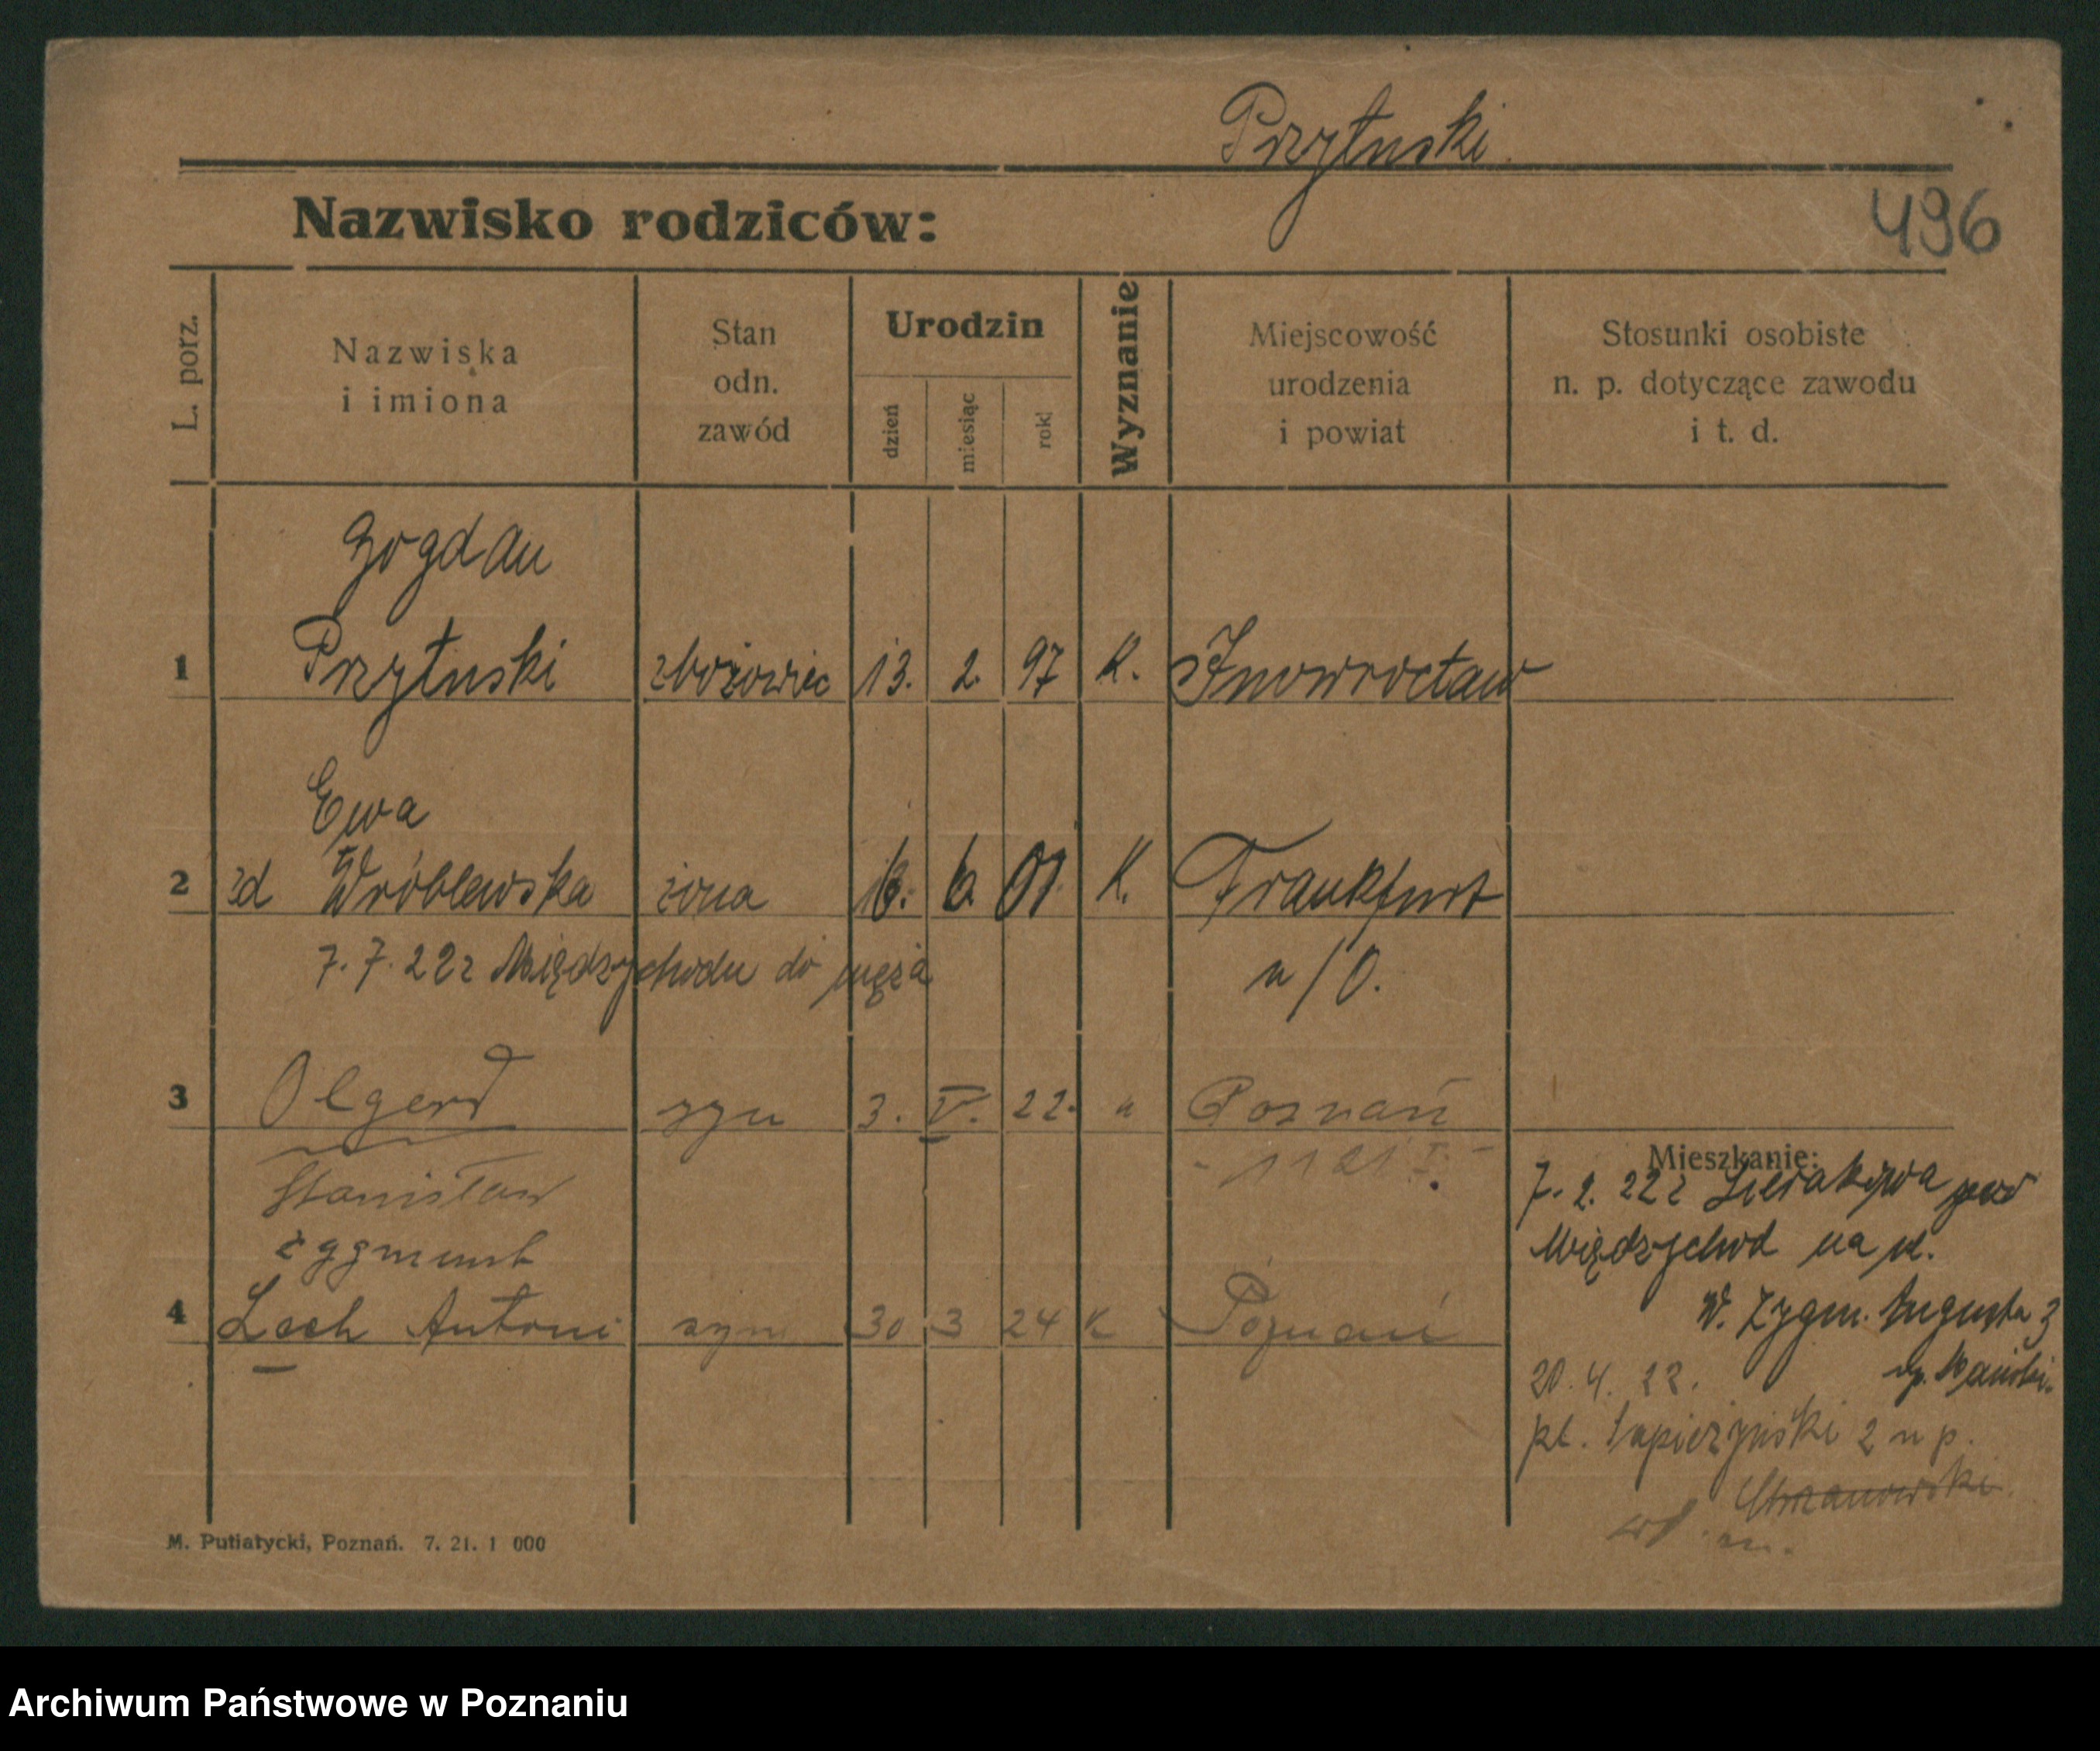 Przyłuski
Nazwisko rodziców:
496
L. porz.
Nazwiska
i imiona
Stan
odn.
zawód
Urodzin
dzień
miesiąc
rok
Wyznanie
Miejscowość
urodzenia
i powiat
Stosunki osobiste
n. p. dotyczące zawodu
i t. d.
Bogdan
1 Przyłuski zbożowiec 13. 2. 97 K. Inowrocław
Ewa
2 zd Wróblewska żona 6. 01. K. Frankfurt
7. 7. 22 z Międzychodu do męża n/O.
3 Olgerd syn 3. V. 22. " Poznań
Stanisław
Zygmunt
4 Lech Antoni syn 30 3 24 K Poznań
Mieszkanie:
7. 2. 22 z Sierakowa pow
Międzychod na pl.
W. Zygm. Augusta 3
20. 4. 22.
pl. Sapieżyński 2 u p.
M. Putiatycki, Poznań. 7. 21. 1 000
Archiwum Państwowe w Poznaniu